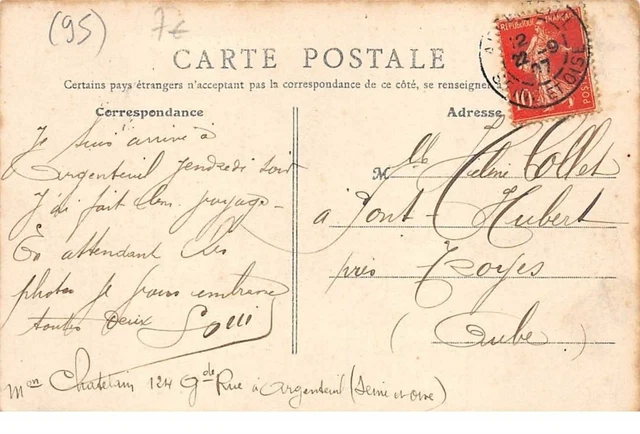 (95) 7€
CARTE POSTALE
Certains pays étrangers n'acceptant pas la correspondance de ce côté, se renseigner
Correspondance
Je suis arrivé à
Argenteuil vendredi soir
J'ai fait bon voyage -
En attendant les
photos je vous embrasse
toutes deux
Mon Chatelain 124 Gde Rue à Argenteuil (Seine et Oise)
Adresse
Mlle Hélène Collet
à Pont-Hubert
près Troyes
(Aube)
REPUBLIQUE FRANÇAISE
10
POSTES
12
-9
07
ET OISE